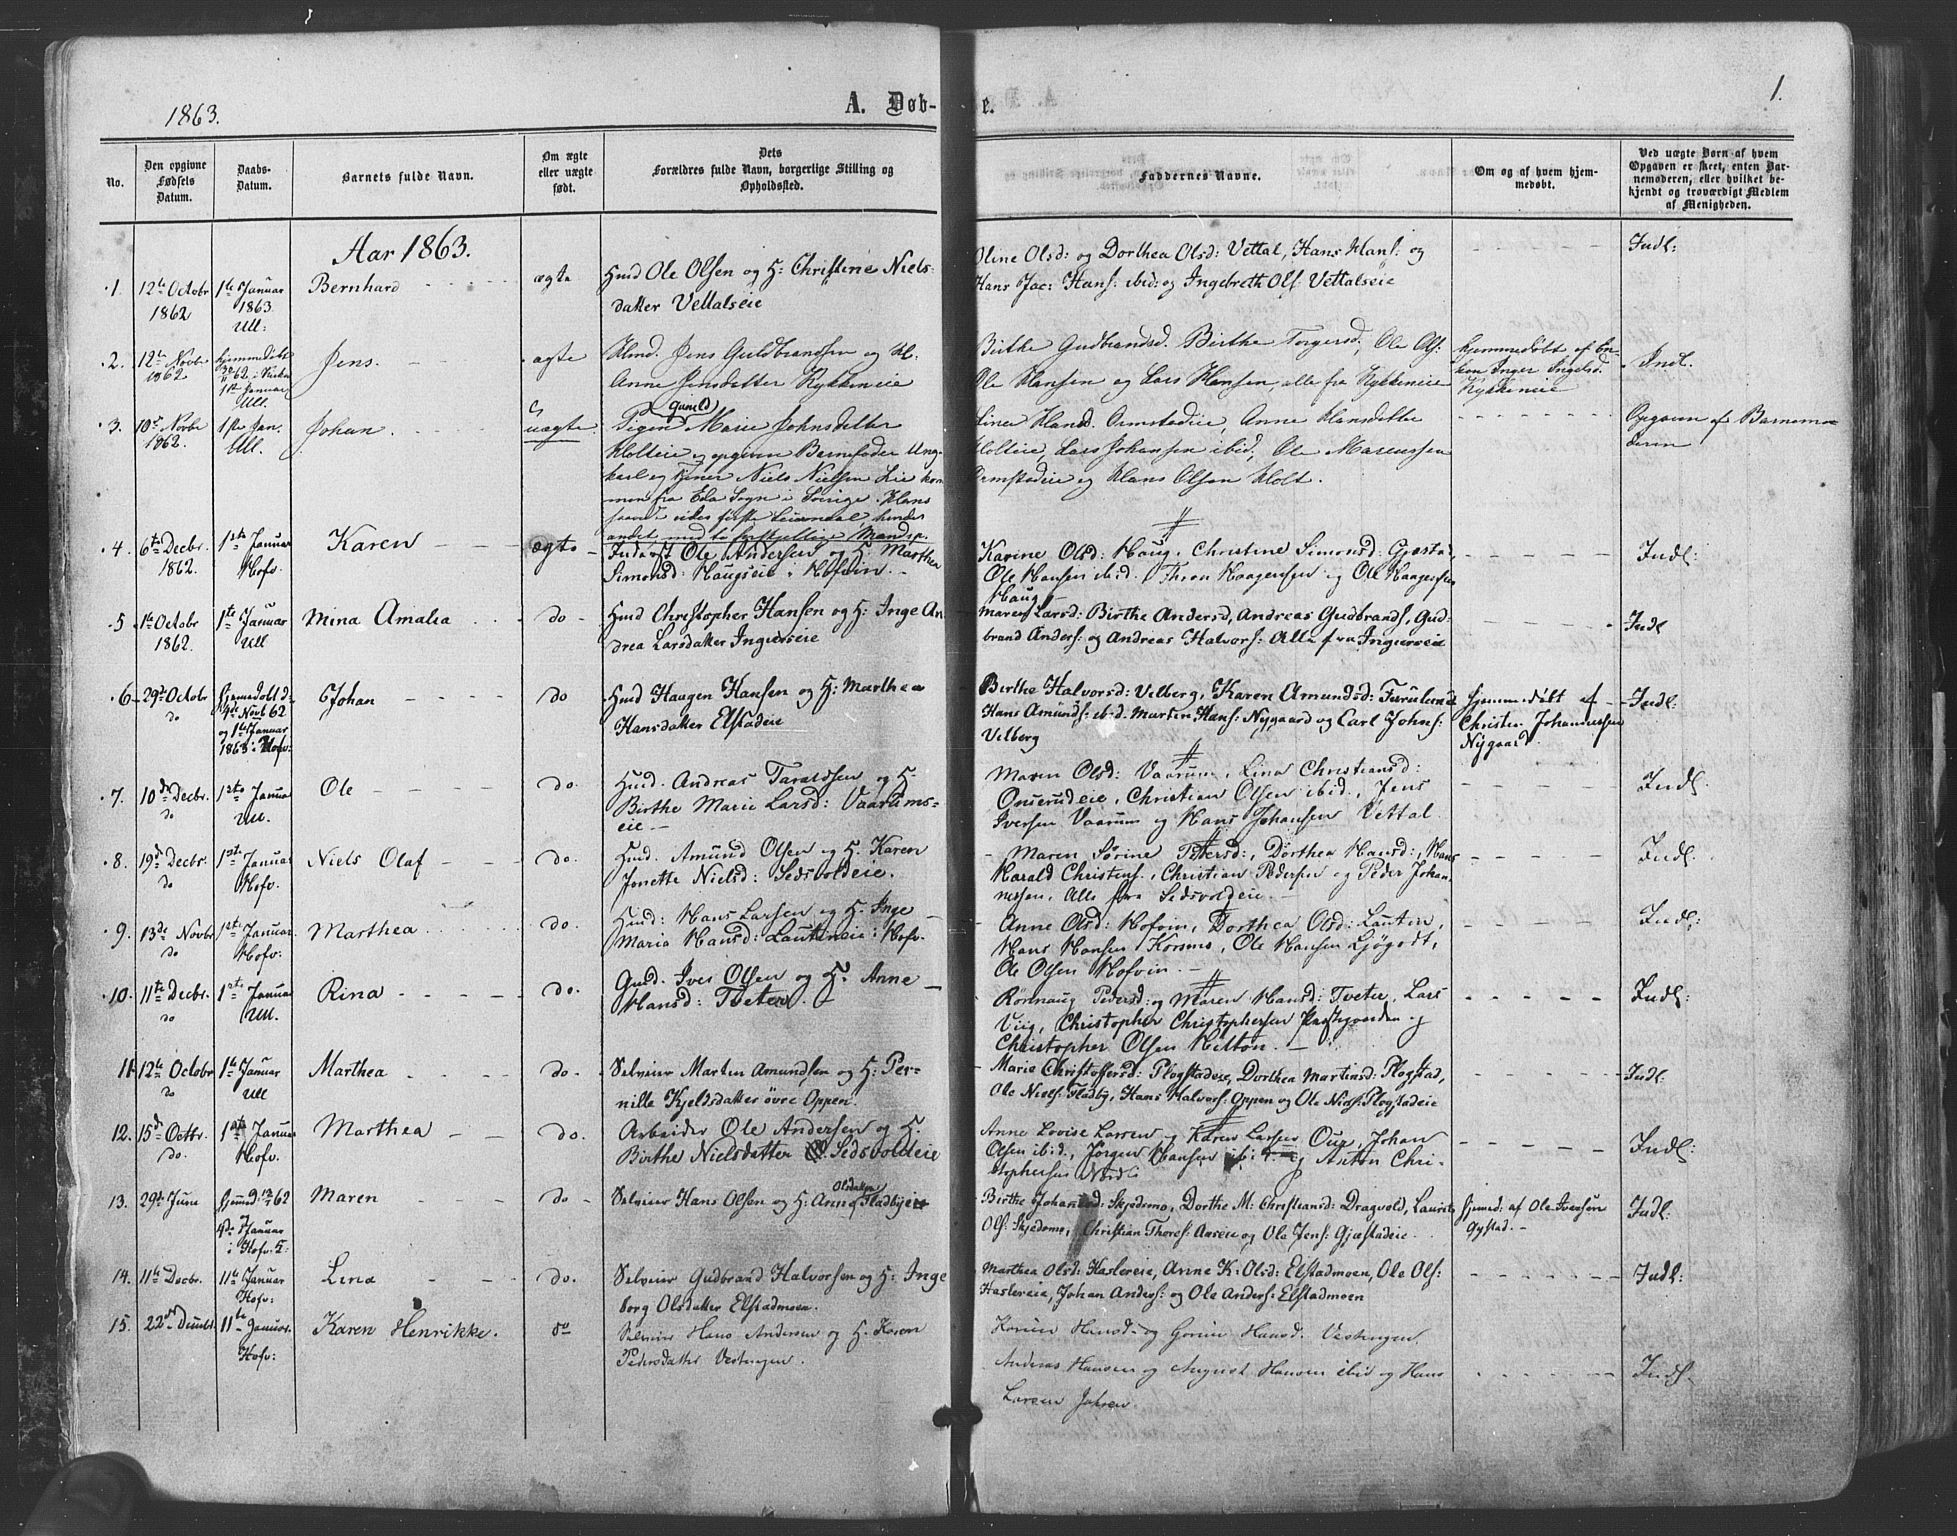 1863.
A. Døb-
e.
1.
No.
Den opgivne
Fødsels
Datum.
Daabs-
Datum.
Barnets fulde Navn.
Om ægte
eller uægte
født.
Dets
Forældres fulde Navn, borgerlige Stilling og
Opholdssted.
Faddernes Navne.
Om og af hvem hjem-
medøbt.
Ved uægte Børn af hvem
Opgaven er skeet, enten Bar-
nemoderen, eller hvilket be-
kjendt og troværdigt Medlem
af Menigheden.
Aar 1863.
1. 12te Octobr
1862
1te Januar
1863
Ull:
Bernhard
ægte
Hmd Ole Olsen og H: Christine Niels-
datter Vettalseie
Oline Olsd: og Dorthea Olsd: Vettal, Hans Hans: og
Hans Jac: Hans: ibid: og Ingebreth Ols: Vettalseie
Indl:
2. 12te Novbr
1862
hjemmedøbt
62, i Kirken
1ste Januar
Ull.
Jens.
ægte
Hmd. Jens Guldbrandsen og H.
Anne Jensdatter Kykkeneie
Birthe Gudbrandsd. Birthe Torgersd., Ole Ols:
Ole Hansen og Lars Hansen, alle fra Kykkeneie
hjemmedøbt af En-
ken Inger Ingelsd.
Kykkeneie
Indl.
3. 10de Novbr
1862.
1ste Jan.
Ull.
Johan
uægte.
Pigen Gunild Marie Johnsdatter
Holteie og opgiven Barnefader Ung-
karl og Tjener Niels Nielsen Lie kom-
men fra Eda Sogn i Sverige. Hans
første Leiermaal, hendes
andet med to forskjellige Mandsp.
Hansd. Ormstadeie, Anne Hansdatter
Holteie, Lars Johansen ibid, Ole Marcussen
Ormstadeie og Hans Olsen Holt.
Opgaven af Barnemo-
deren
4. 6te Decbr.
1862.
1ste Januar
Hofv.
Karen
ægte
Inderst Ole Andersen og H. Marthea
Simonsd: Haugseie i Hofvin.
Karine Olsd: Haug, Christine Simonsd: Gjestad,
Ole Hansen ibid., Thron Haagensen og Ole Haagensen
Haug
Indl:
5 1te Octobr
1862.
1te Januar
Ull
Mina Amalia
do
Hmd Christopher Hansen og H: Inge An-
drea Larsdatter Ingierseie
Maren Larsd: Birthe Andersd, Andreas Gudbrands, Gud-
brand Anders: og Andreas Halvors: Alle fra Ingierseie
Indl
6 29de Octobr
do
Hjemmedøbt d:
Novbr 62
og 1te Januar
1863 i Hofv:
Johan
do
Hmd Haagen Hansen og H: Marthea
Hansdatter Elstadeie
Birthe Halvorsd: Velberg, Karen Amundsd: Furulund
Hans Amunds: ibid: Martin Hans: Nygaard og Carl Johns:
Velberg
hjemmedøbt af
Christen Johannessen
Nygaard.
Indl:
7. 10de Decbr.
do
1ste Januar
Ull.
Ole
do.
Hmd. Andreas Taraldsen og H.
Birthe Marie Larsd: Vaarums-
eie
Maren Olsd: Vaarum, Lina Christiansd:
Onserudeie, Christian Olsen ibid., Jens
Iversen Vaarum og Hans Johansen Vettal.
Indl.
8. 19de Decbr.
do
1ste Januar
Hofv.
Niels Olaf
do.
Hmd. Amund Olsen og H. Karen
Jonette Nielsd: Sedsvoldeie.
Maren Sørine Pedersd:, Dorthea Hansd:, Hans
Harald Christens:, Christian Pedersen og Peder Johan-
nessen, Alle fra Sedsvoldeie.
Indl.
9. 13de Novbr
do
1ste Januar
Hofv.
Marthea
do.
Hmd: Hans Larsen og H. Inge
Maria Hansd: Lauteneie i Hofv.
Anne Olsd: Hofvin, Dorthea Olsd: Lautin,
Hans Hansen Korsmo, Ole Hansen Ljøgodt,
Ole Olsen Hofvin.
Indl:
10. 11te Decbr.
do
1ste Januar
Ull.
Rina
do.
Gmd. Iver Olsen og H. Anne
Hansd: Tveter.
Rønnaug Pedersd: og Maren Hansd: Tveter, Lars
Viig, Christopher Christophersen Præstegaarden og
Christopher Olsen Hilton.
Indl:
11. 12te Octobr
do
1te Januar
Ull
Marthea
do
Selveier Marten Amundsen og H: Per-
nille Kjeldsdatter øvre Oppen.
Marie Christoffersd: Plogstadeie, Dorthea Martinsd: Plogstad,
Ole Niels: Fladby, Hans Halvors: Oppen og Ole Niels: Plogstadeie
Indl:
12. 15de Octbr.
do.
1ste Januar
Hofv.
Marthea
do.
Arbeider Ole Andersen og H.
Birthe Nielsdatter Sedsvoldeie
Anne Lovise Larsen og Karen Larsen Our, Johan
Olsen ibid., Jørgen Hansen ibid. og Anton Chri-
stophersen Nord
Indl:
13. 29de Juni
Hjemmed: 62
og
4de Januar
i Hofv.
Maren
do
Selveier Hans Olsen og H: Anne Olsdatter Fladbyeie
Birthe Johannesd: Skjedsmo, Dorthe M: Christiansd: Dragvold, Laurits
Ols: Skjedsmo, Christian Thores: Aaseie og Ole Jens: Gjæstadeie
Hjemmed: af Ole Iversen
Gystad.
Indl:
14. 11te Decbr.
11te Januar
Hofv:
Lina
do.
Selveier Gudbrand Halvorsen og H: Inge
borg Olsdatter Elstadmoen.
Marthea Olsd: Haslereie, Anne K: Olsd: Elstadmoen, Ole Ols:
Haslereie, Johan Anders: og Ole Anders: Elstadmoen
Indl:
15. 22de
11te Januar
Hofv:
Karen Henrikke.
do
Selveier Hans Andersen og H. Karen
Pedersdatter Vestengen.
Karen Hansd. og Gorine Hansd. Vestengen
Andreas Hansen og August Hansen ibid og Hans
Larsen
Indl.